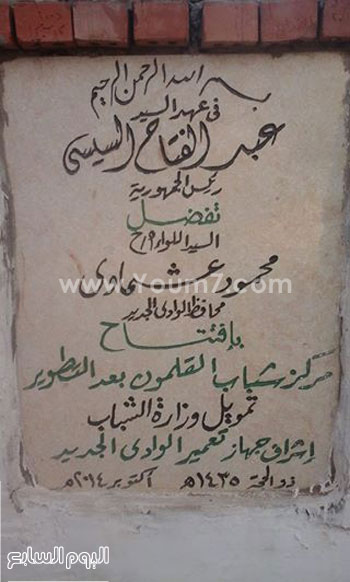 بسم الله الرحمن الرحيم
فى عهد السيد
عبد الفتاح السيسى
رئيس الجمهورية
تفضل
السيد اللواء أ/ح
محمود عشماوى
www.Youm7.com
محافظ الوادى الجديد
بإفتتاح
مركز شباب القلمون بعد التطوير
تمويل وزارة الشباب
إشراف جهاز تعمير الوادى الجديد
ذو الحجة ١٤٣٥هـ أكتوبر ٢٠١٤م
اليوم السابع